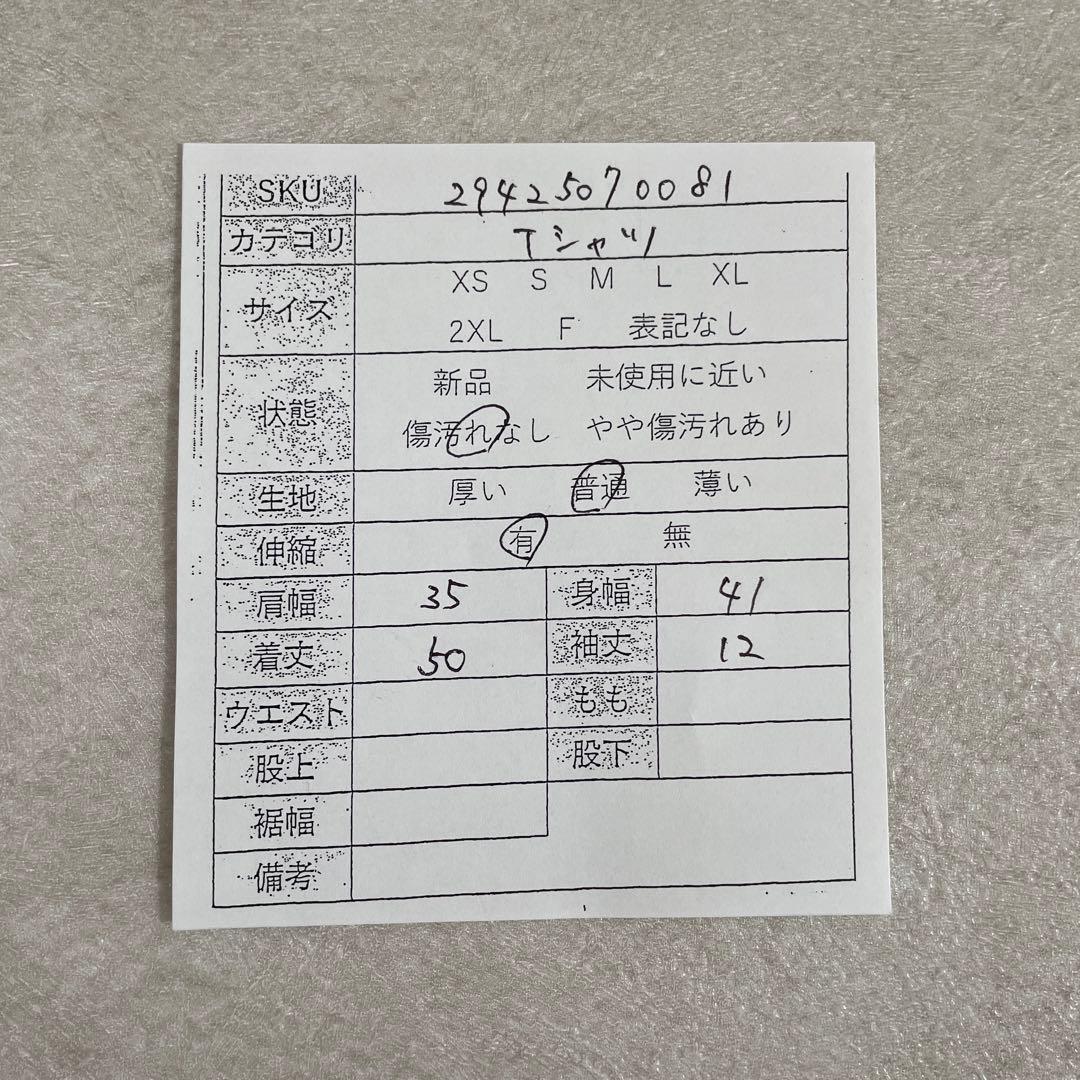 SKU 29425070081
カテゴリ Tシャツ
サイズ XS S M L XL
2XL F 表記なし
状態 新品 未使用に近い
傷汚れなし やや傷汚れあり
生地 厚い 普通 薄い
伸縮 有 無
肩幅 35 身幅 41
着丈 50 袖丈 12
ウエスト もも
股上 股下
裾幅
備考